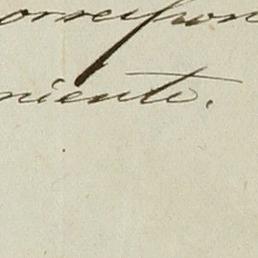 orrespon
niente.